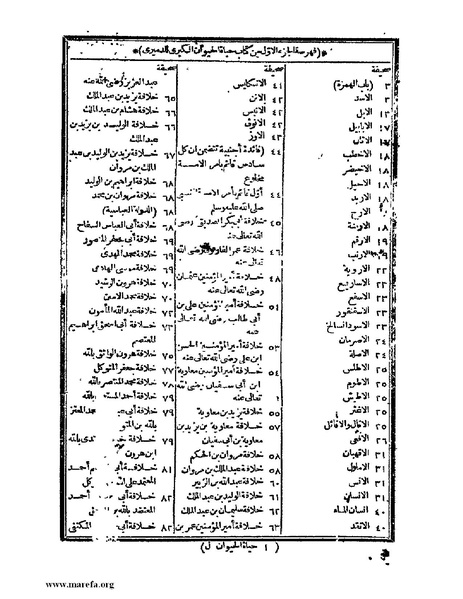 (فهرسة الجزء الاول من كتاب حياة الحيوان الكبرى للدميرى)
صحيفة
٣ (باب الهمزة)
٣ الاسد
١٢ الابل
١٧ الابابيل
١٧ الاتان
١٨ الاخطب
١٨ الاخيضر
١٨ الاخيل
١٨ الاربد
الارخ
١٨ الارضة
١٩ الارقم
١٩ الارنب
٢٢ الاروية
٢٢ الاساريع
٢٣ الاسفع
٢٣ الاسقنقور
٢٣ الاسود السالخ
٢٤ الاصرمان
٢٤ الاصلة
٢٥ الاطلس
٢٥ الاطوم
٢٥ الاطيش
٢٥ الاغثر
٢٥ الافال والافائل
٢٦ الافعى
٣٠ الاقهبان
٣١ الاملول
٣١ الانس
٣١ الانسان
٤٠ انسان الماء
٤٠ الانقد
صحيفة
٤١ الانكليس
٤٢ الانن
٤٢ الانيس
٤٢ الانوق
٤٣ الاوز
٤٤ (فائدة أجنبية تتضمن ان كل
سادس قائم بأمر الامة
مخلوع
٤٤ أول قائم بأمر الامة النبى
صلى الله عليه وسلم
٤٥ خلافة أبى بكر الصديق رضى
الله تعالى عنه
٤٦ خلافة عمر الفاروق رضى الله
تعالى عنه
٤٨ خلافة أمير المؤمنين عثمان
رضى الله تعالى عنه
٥١ خلافة أمير المؤمنين على بن
أبى طالب رضى الله تعالى
عنه
٥٣ خلافة أمير المؤمنين الحسن
ابن على رضى الله تعالى عنه
٥٤ خلافة أمير المؤمنين معاوية
ابن أبى سفيان رضى الله
تعالى عنه
٥٥ خلافة يزيد بن معاوية
٥٧ خلافة معاوية بن يزيد بن
معاوية بن أبى سفيان
٥٨ خلافة مروان بن الحكم
٥٨ خلافة عبد الملك بن مروان
٥٨ خلافة عبد الله بن الزبير
٦١ خلافة الوليد بن عبد الملك
٦٢ خلافة سليمان بن عبد الملك
٦٣ خلافة أمير المؤمنين عمر بن
صحيفة
عبد العزيز رضى الله عنه
٦٥ خلافة يزيد بن عبد الملك
٦٦ خلافة هشام بن عبد الملك
٦٦ خلافة الوليد بن يزيد بن
عبد الملك
٦٧ خلافة يزيد بن الوليد بن عبد
الملك بن مروان
٦٨ خلافة ابراهيم بن الوليد
٦٨ خلافة مروان بن محمد
(الدولة العباسية)
٦٨ خلافة أبى العباس السفاح
خلافة أبى جعفر المنصور
خلافة محمد المهدى
خلافة موسى الهادى
٧٠ خلافة هرون الرشيد
خلافة محمد الامين
خلافة عبد الله المأمون
٧٣ خلافة أبى اسحق ابراهيم
المعتصم
خلافة هرون الواثق بالله
٧٧ خلافة جعفر المتوكل
٧٨ خلافة محمد المنتصر بالله
خلافة أحمد المستعين بالله
٧٩ خلافة أبى عبد المعتز
بالله بن المتو
٧٩ خلافة دى بالله
ابن هرون
٨١ خلافة أبى أحمد
المعتمد على الله كل
٨٢ خلافة أبى أحمد
المعتضد بالله
٨٢ خلافة أبى المكتفى
(١ حياة الحيوان ل)
www.marefa.org